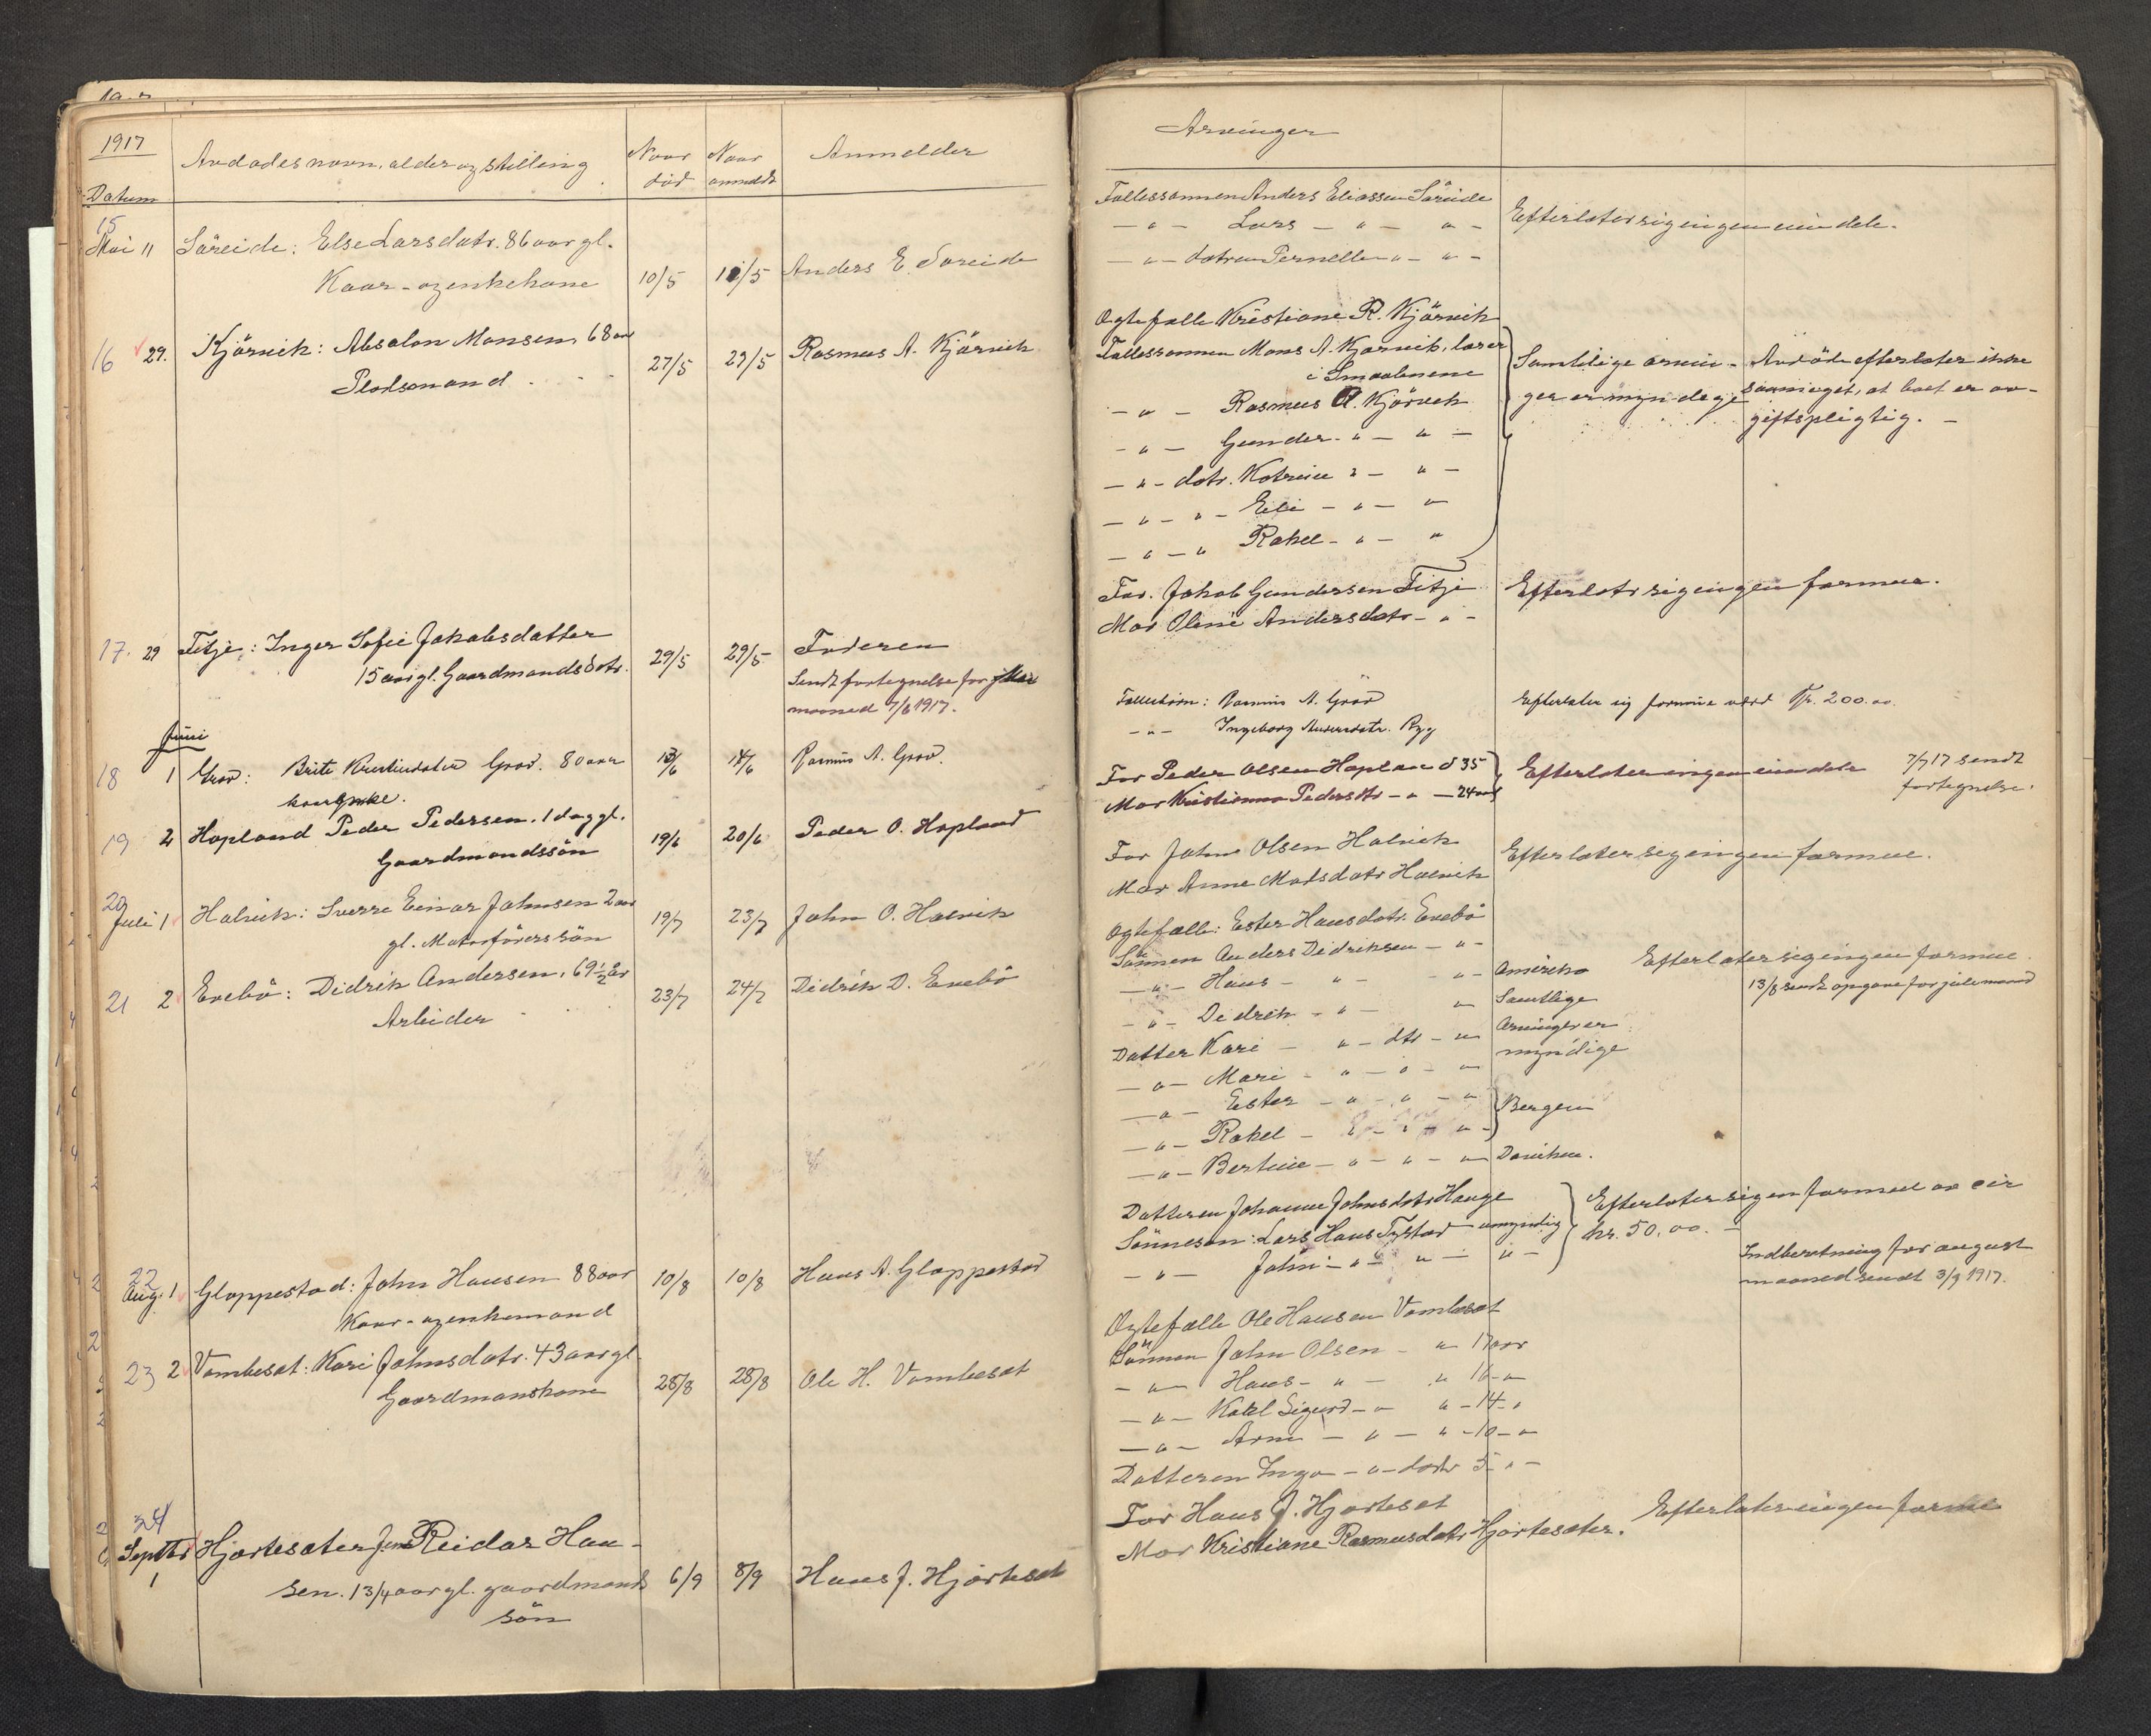 1917
Datum
Avdödes navn, alder og stilling
Naar död
Naar anmeldt
Anmelder
15
Mai 11 Söreide: Else Larsdatr. 86 aar gl.
Kaar- og enkekone
10/5 11/5 Anders E. Söreide
16 29. Kjörvik: Absalon Monsen, 68 aar
Pladsmand
27/5 29/5 Rasmus A. Kjörvik
17. 29 Fitje: Inger Sofie Jakobsdatter
15 aar gl. Gaardmandsdatr.
29/5 29/5 Faderen
Sendt fortegnelse for Mai
maaned 7/6 1917.
Juni
18 1 Grov: Brite Kristiansdatter Grov. 80 aar
kaarenke.
13/6 14/6 Rasmus A. Grov.
19 2 Hopland Peder Pedersen. 1 dag gl.
Gaardmandssön
19/6 20/6 Peder O. Hopland
20
Juli 1 Holvik: Sverre Einar Johnsen 2 aar
gl. Motorförerssön
19/7 23/7 John O. Holvik
21 2 Evebö: Didrik Andersen, 69 1/2 år
Arbeider
23/7 24/7 Didrik D. Evebö
22
Aug. 1 Gloppestad: John Hansen 88 aar
Kaar- og enkemand
10/8 10/8 Hans A. Gloppestad
23 2 Vombesat: Kari Johnsdatr. 43 aar gl.
Gaardmanskone
25/8 28/8 Ole H. Vombesat
24
Septbr 1 Hjortesæter Reidar Han-
sen. 1 3/4 aar gl. gaardmands
sön
6/9 8/9 Hans J. Hjortesat
Arvinger
Fællessönnen Anders Eliassen Söreide
— " — Lars — " — " —
— " — datren Pernelle " — " —
Efterlater sig ingen eiendele.
Ægtefælle Kristiane R. Kjörvik
Fællessönnen Mons A. Kjörvik, lærer
i Smaalenene
— " — Rasmus A. Kjörvik
— " — Gunder — " — " —
— " — datr. Katrine " — " —
— " — " — Eli — " — "
— " — " Rakel — " — "
Samtlige arvin-
ger er myndige
Avdöde efterlater ikke
saa meget, at boet er av-
giftspligtig. —
Far. Jakob Gundersen Fitje
Mor Oline Andersdatr — " —
Efterlatr sig ingen formue.
Fællesbörn: Rasmus A. Grov
— " — Ingeborg Andersdatr. Ryg
Efterlater sig formue værd Kr. 200.00
Far Peder Olsen Hopland 35
Mor Kristianna Pedersdtr — " — 24 aar
Efterlater ingen eiendele
7/7 17 sendt
fortegnelse.
Far John Olsen Holvik
Mor Anne Matsdatr Holvik
Efterlater sig ingen formue.
Ægtefælle: Ester Hansdatr. Evebö
Sönnen Anders Didriksen — " —
— " — Hans — " — — " — Amerika
— " — Didrik — " — "
Datter Kari — " — dtr — "
— " — Mari — " — " — "
— " — Ester — " — " — "
— " — Rakel — " — " — "
— " — Bertine — " — " — "
Samtlige
Arvinger er
myndige
Bergen
Daviken.
Efterlater sig ingen formue.
13/8 sendt opgave for juli maaned
Datteren Johanne Johnsdatr Hauge
Sönnesön: Lars Hans Tystad umyndig
— " — John — " — " — " —
Efterlater sig en formue av cir
kr. 50.00. —
Indberetning for august
maaned sendt 3/9 1917.
Ægtefælle Ole Hansen Vombesat
Sönnen John Olsen — " 17 aar
— " — Hans — " — " 16 — "
— " — Karl Sigurd — " — " — 14 — "
— " — Arne — " — " — 10 — "
Datteren Inga — " — datr 5 — " —
Far Hans J. Hjortesat
Mor Kristiane Rasmusdatr Hjortesæter.
Efterlater ingen formue